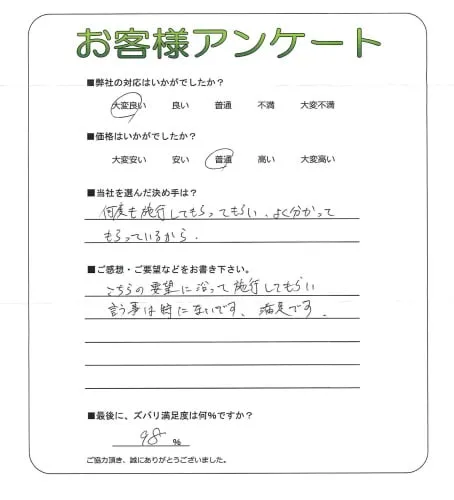 お客様アンケート
■弊社の対応はいかがでしたか?
大変良い 良い 普通 不満 大変不満
■価格はいかがでしたか?
大変安い 安い 普通 高い 大変高い
■当社を選んだ決め手は?
何度も施行してもらってもらい、よく分かって
もらっているから、
■ご感想・ご要望などをお書き下さい。
こちらの要望に沿って施行してもらい
言う事は特にないです、満足です、
■最後に、ズバリ満足度は何%ですか?
98 %
ご協力頂き、誠にありがとうございました。